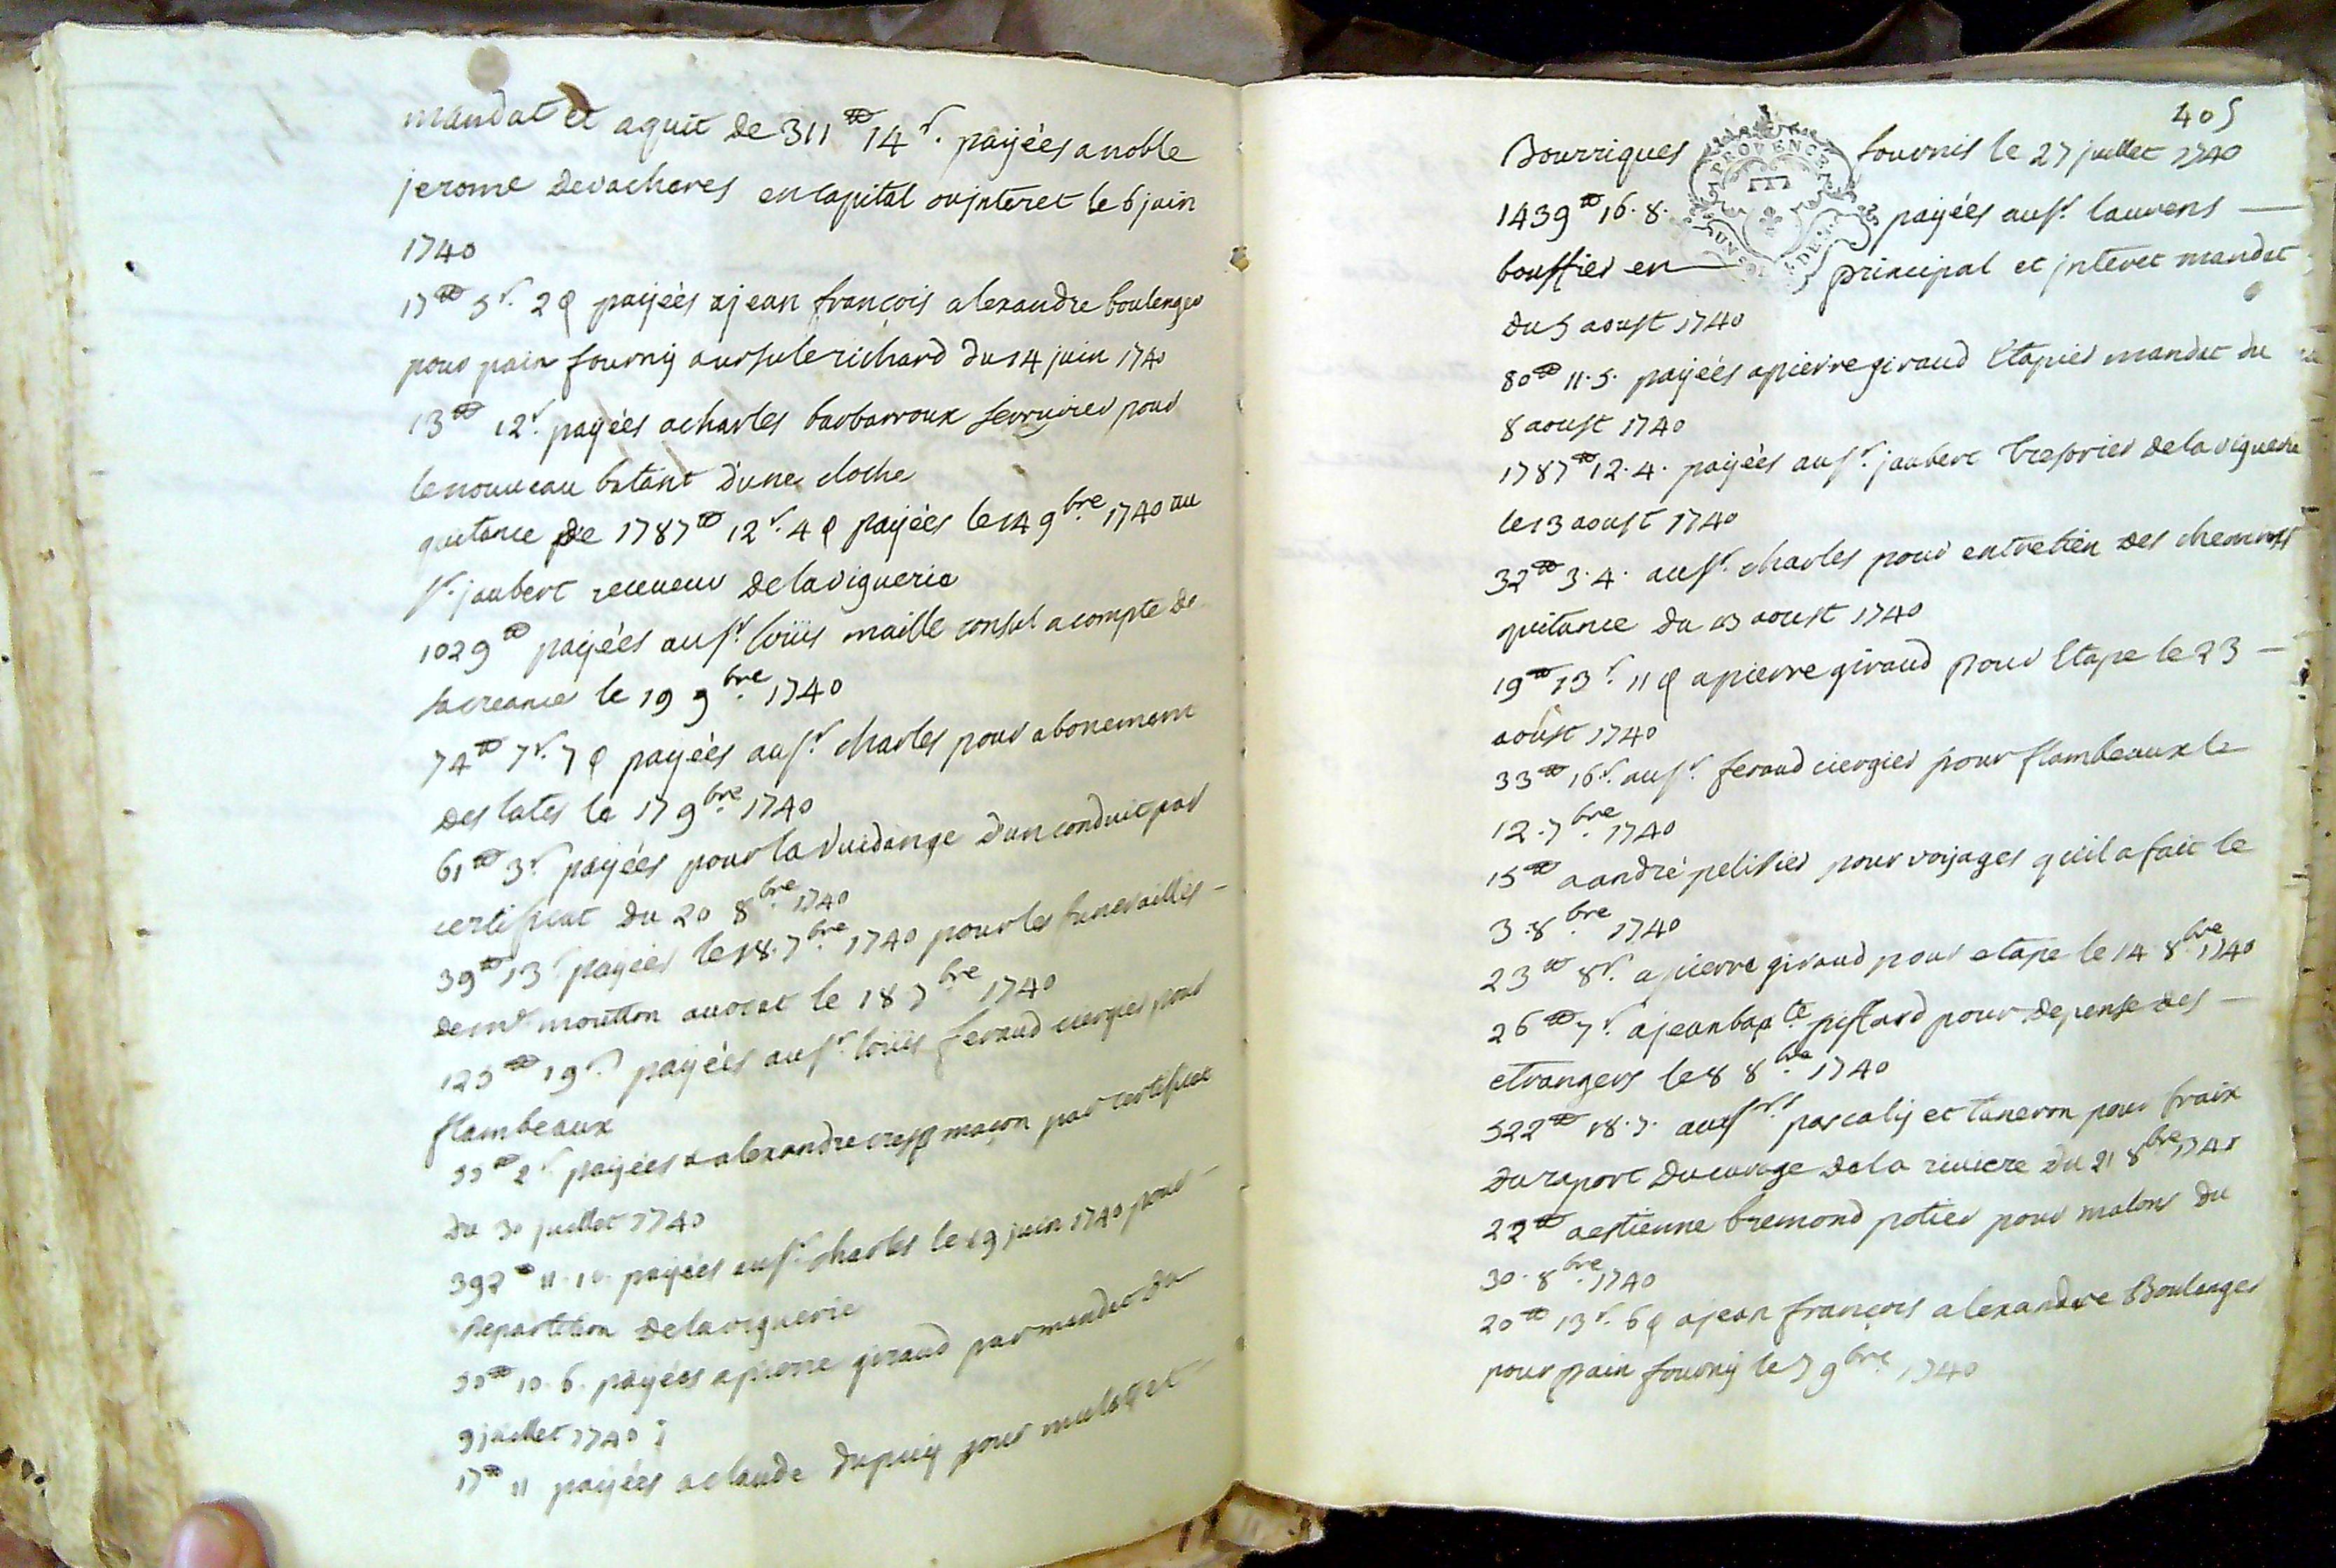 mandat et aquit de 311 ₶ 14 s. payées a noble
jerome devacheres en capital ou jnteret le 6 juin
1740
17 ₶ 5 s. 2 d payées a jean françois alexandre boulenger
pour pain fourny a ursule richard du 14 juin 1740
13 ₶ 12 s. payées a charles barbarroux serrurier pour
le nouveau batant d'une cloche
quitance de 1787 ₶ 12 s. 4 d payées le 14 9bre 1740 au
sr. jaubert receveur de la viguerie
1029 ₶ payées au sr. loüis maille consul a compte de
sa creance le 19 9bre 1740
74 ₶ 7 s. 7 d payées au sr. charles pour abonement
des lates le 17 9bre 1740
61 ₶ 3 s. payées pour la vuidange d'un conduit par
certificat du 20 8bre 1740
39 ₶ 13 s. payées le 18. 7bre 1740 pour les funerailles
de mr moutton avocat le 18 7bre 1740
125 ₶ 19 s. payées au sr. loüis feraud ciergier pour
flambeaux
33 ₶ 2 s. payées a alexandre cresp maçon par certificat
du 30 juillet 1740
392 ₶ 11. 10. payées au sr. charles le 19 juin 1740 pour
Repartition de la viguerie
30 ₶ 10. 6. payées a pierre giraud par mandat du
9 juillet 1740
17 ₶ 11 payées a claude dupuy pour mulets et
405
Bourriques fournis le 27 juillet 1740
PROVENCE
1439 ₶ 16. 8. payées au sr. laurens
bouffier en principal et jnteret mandat
du 5 aoust 1740
80 ₶ 11. 5. payées a pierre giraud Etapier mandat du
8 aoust 1740
1787 ₶ 12. 4. payées au sr. jaubert tresorier de la viguerie
le 13 aoust 1740
32 ₶ 3. 4. au sr. charles pour entretien des chemins
quitance du 13 aoust 1740
19 ₶ 13 s. 11 d a pierre giraud pour Etape le 23
aoust 1740
33 ₶ 16 s. au sr. feraud ciergier pour flambeaux le
12. 7bre 1740
15 ₶ a andré pelissier pour voyages qu'il a fait le
3. 8bre 1740
23 ₶ 8 s. a pierre giraud pour etape le 14 8bre 1740
26 ₶ 7 s. a jean bapte piffard pour depense des
etrangers le 8 8bre 1740
522 ₶ 18. 7. aux srs pascalis et taneron pour fraix
du raport du curage de la riviere du 21 8bre 1740
22 ₶ a estienne bremond potier pour malons du
30. 8bre 1740
20 ₶ 13 s. 6 d a jean françois alexandre Boulanger
pour pain fourny le 7 9bre 1740